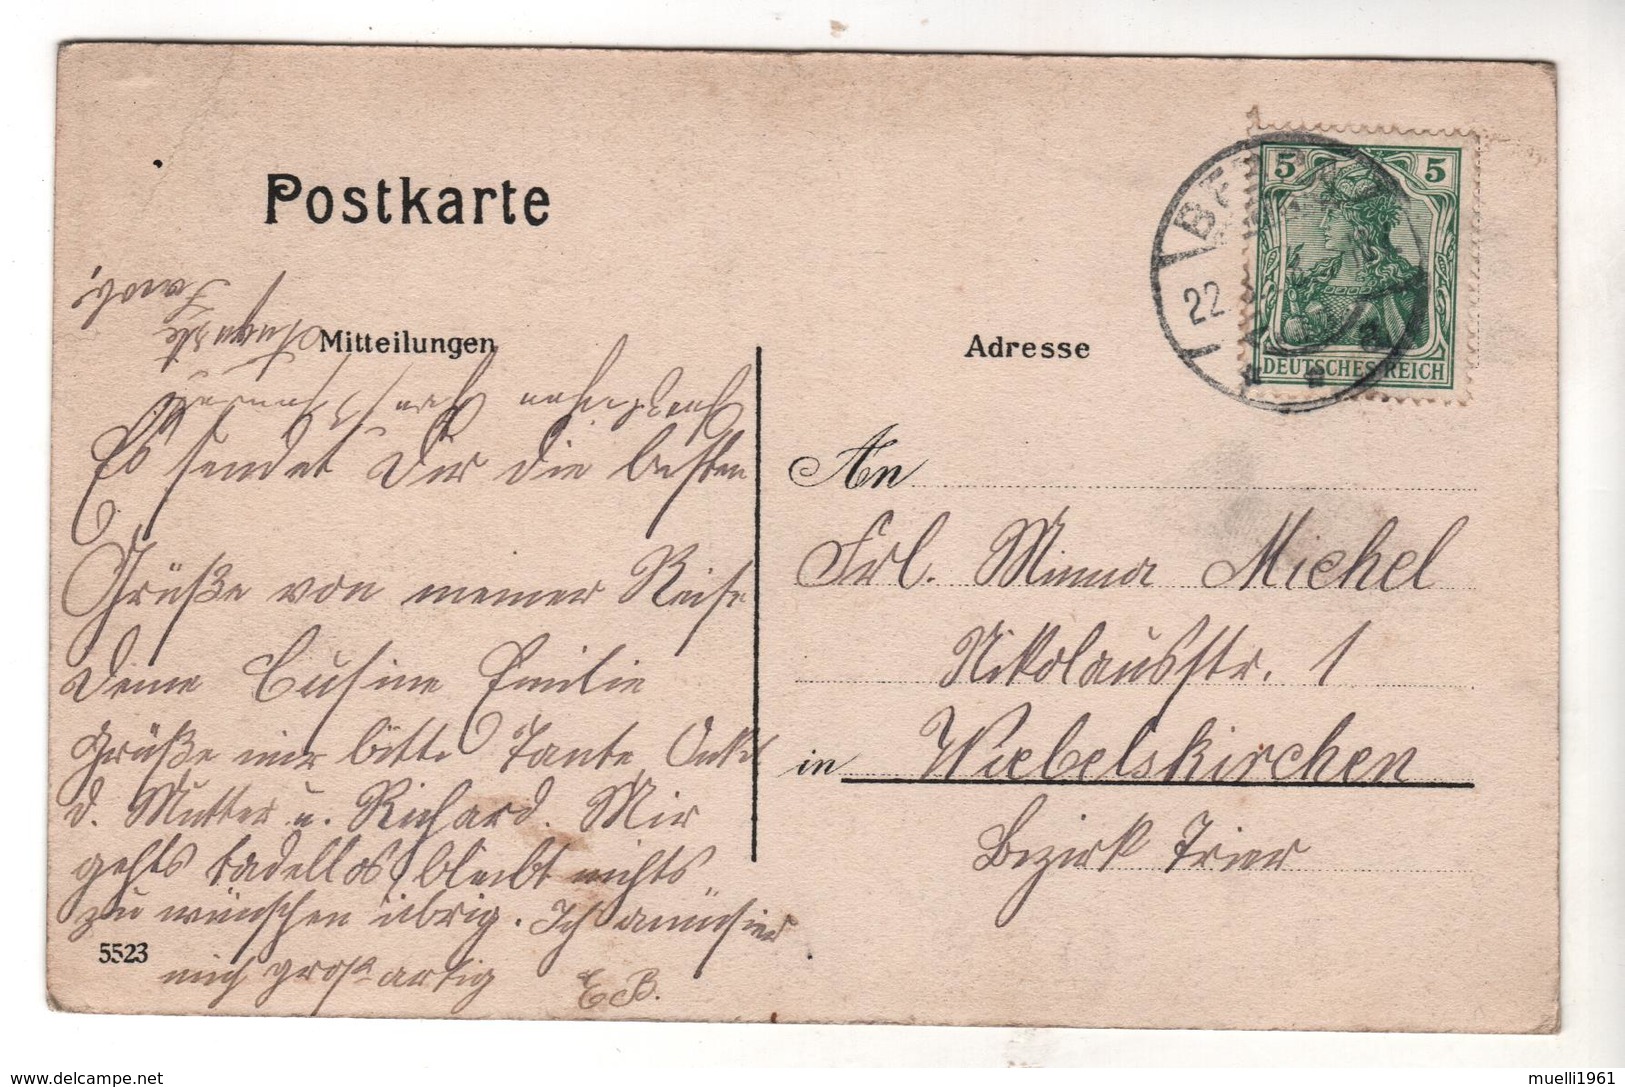 Postkarte
Mitteilungen
Adresse
5 5
DEUTSCHES REICH
22
Es sendet Dir die besten
Grüße von meiner Reise
Deine Cusine Emilie
Grüße mir bitte Tante Onkel
d. Mutter u. Richard. Mir
gehts tadellos, bleibt nichts
zu wünschen übrig. Ich amüsier
mich großartig E. B.
5523
An
Frl. Minna Michel
Nikolausstr. 1
in Wiebelskirchen
Bezirk Trier
muelli1961